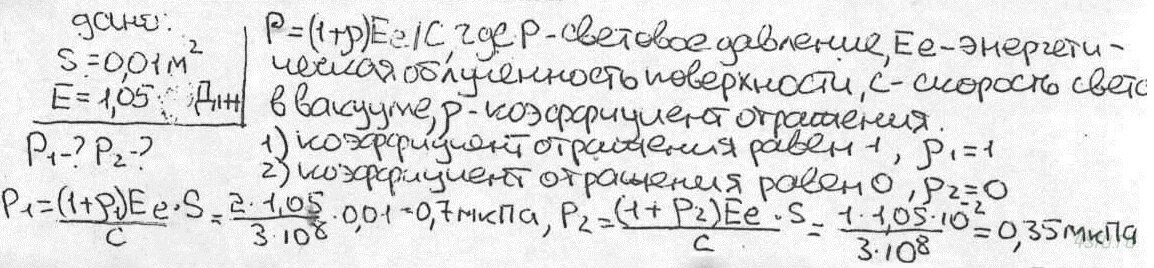 дано:
S=0,01м²
E=1,05 Дж
P₁-? P₂-?
P=(1+ρ)Ee/C, где P-световое давление, Ee-энергети-
ческая облученность поверхности, c-скорость света
в вакууме, ρ-коэффициент отражения.
1) коэффициент отражения равен 1, ρ₁=1
2) коэффициент отражения равен 0, ρ₂=0
P₁=(1+ρ₁)Ee·S/c = 2·1,05/3·10⁸·0,01=0,7мкПа, P₂=(1+ρ₂)Ee·S/c = 1·1,05·10⁻²/3·10⁸=0,35мкПа